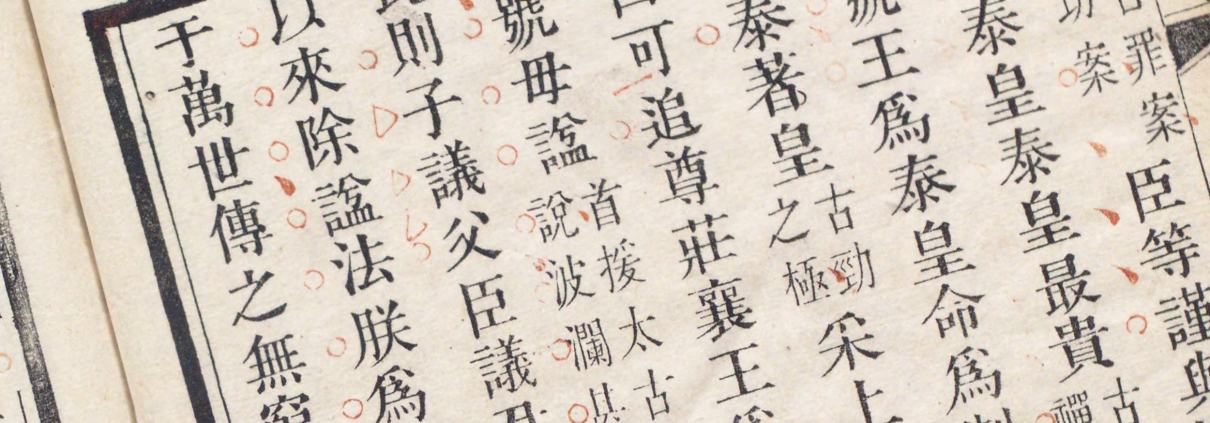 罪案
功案
臣等謹與
泰皇泰皇最貴
古
禪
號王爲泰皇命爲制
泰著皇
古勁
之極
采上
曰可追尊莊襄王爲
號毋諡
首援太古
說波瀾甚
則子議父臣議君
以來除諡法朕爲
千萬世傳之無窮